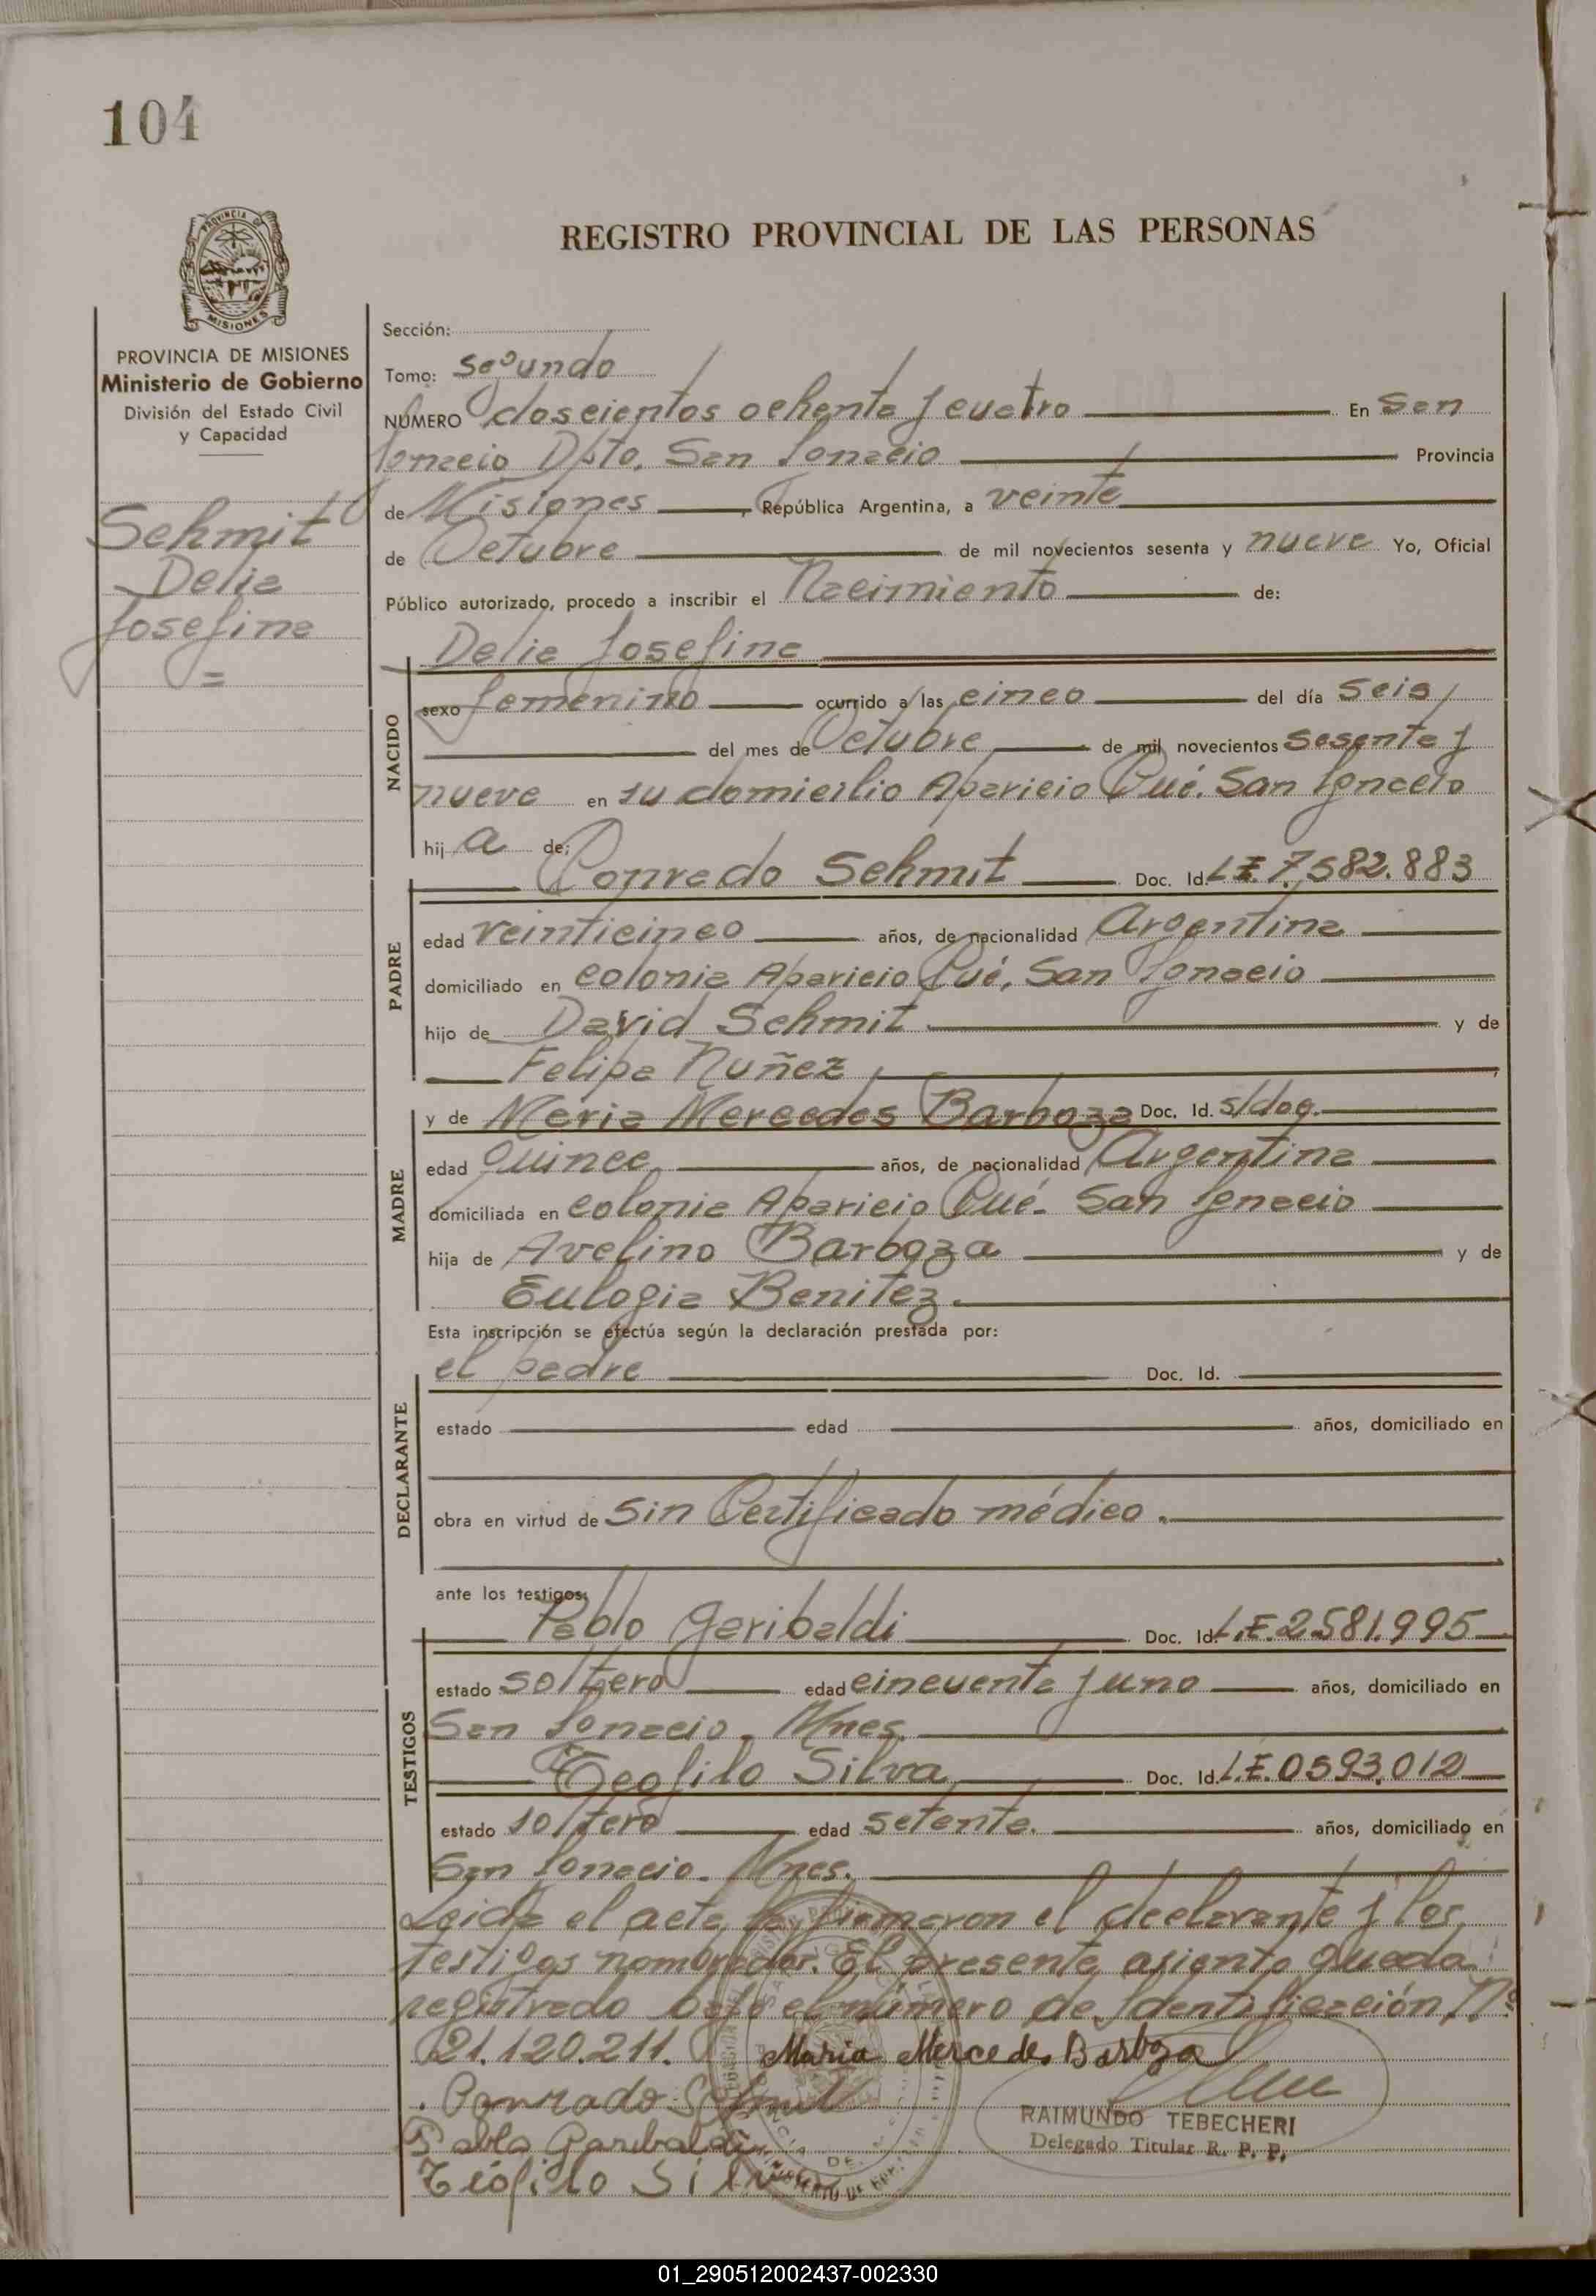 104
PROVINCIA DE MISIONES
Ministerio de Gobierno
División del Estado Civil
y Capacidad
Schmit
Delia
Josefina
=
REGISTRO PROVINCIAL DE LAS PERSONAS
Sección:
Tomo: Segundo
NUMERO doscientos ochenta y cuatro En San
Ignacio Dpto. San Ignacio Provincia
de Misiones, República Argentina, a veinte
de Octubre de mil novecientos sesenta y nueve Yo, Oficial
Público autorizado, procedo a inscribir el Nacimiento de:
Delia Josefina
NACIDO
sexo femenino ocurrido a las cinco del día seis
del mes de Octubre de mil novecientos sesenta y
nueve en su domicilio Aparicio Cué. San Ignacio
hija de:
PADRE
Conrado Schmit Doc. Id. L.E. 7.582.883
edad veinticinco años, de nacionalidad Argentina
domiciliado en colonia Aparicio Cué, San Ignacio
hijo de David Schmit y de
Felipa Nuñez
MADRE
y de María Mercedes Barboza Doc. Id. s/dog.
edad quince años, de nacionalidad Argentina
domiciliada en colonia Aparicio Cué. San Ignacio
hija de Avelino Barboza y de
Eulogia Benitez.
Esta inscripción se efectúa según la declaración prestada por:
DECLARANTE
el padre Doc. Id.
estado edad años, domiciliado en
obra en virtud de sin Certificado médico.
ante los testigos:
TESTIGOS
Pablo Garibaldi Doc. Id. L.E. 2.581.995
estado soltero edad cincuenta y uno años, domiciliado en
San Ignacio. Mnes.
Teofilo Silva Doc. Id. L.E. 0593.012
estado soltero edad setenta. años, domiciliado en
San Ignacio. Mnes.
Leida el acta la firmaron el declarante y los
testigos nombrados. El presente asiento queda
registrado bajo el número de Identificación Nº
21.120.211. Maria Mercedes Barboza
Conrado Schmit
RAIMUNDO TEBECHERI
Pablo Garibaldi
Delegado Titular R. P. P.
Teófilo Silva
01_290512002437-002330